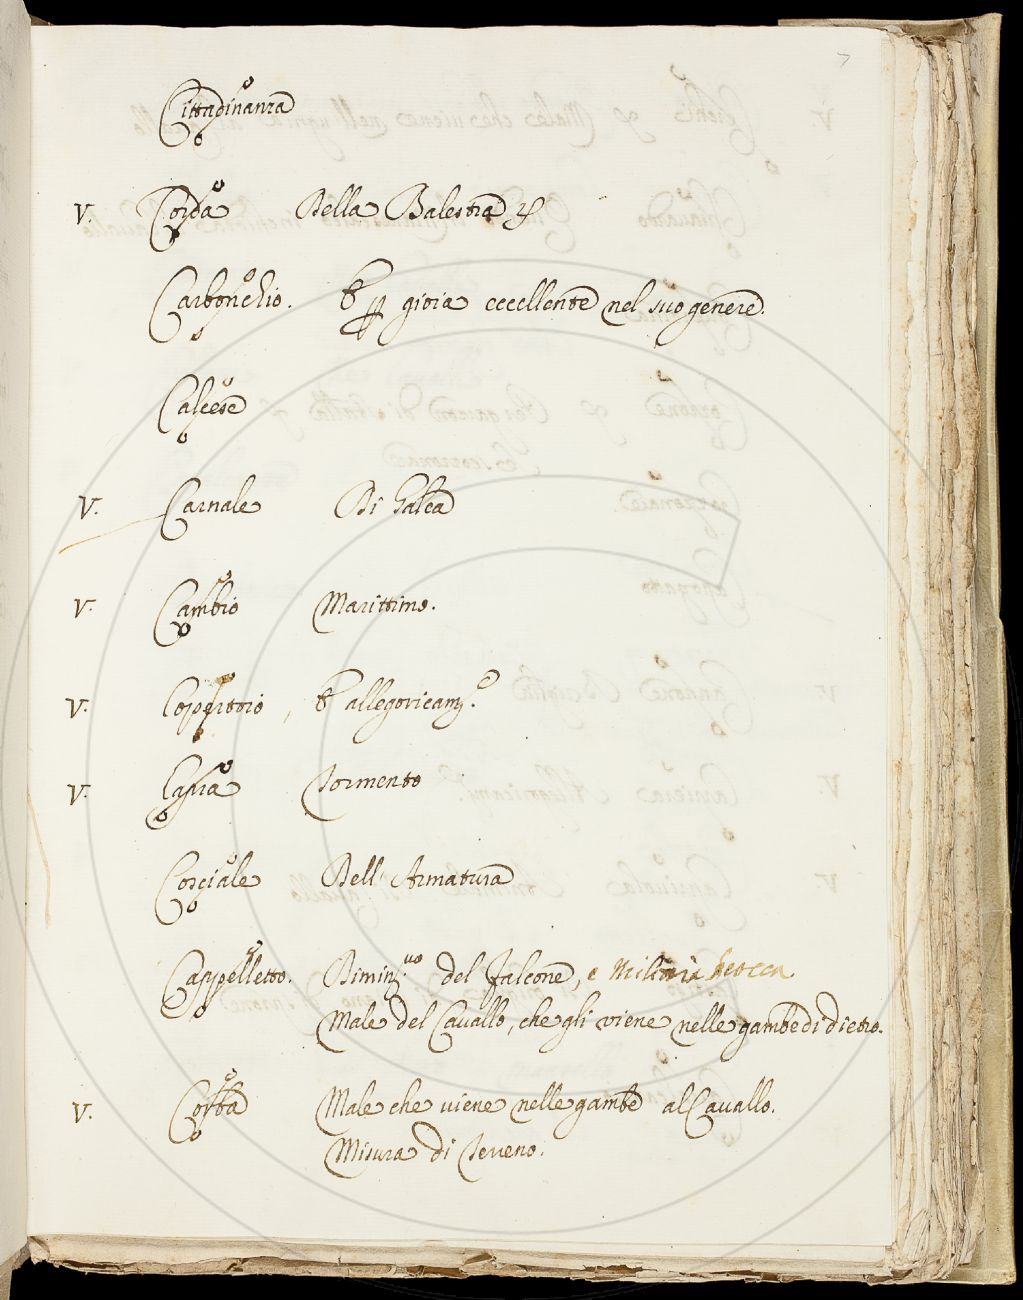 7
Cittadinanza
V. Corda Della Balestra
Carbonchio. gioia eccellente nel suo genere.
Calcese
V. Carnale Di Galea
V. Cambio Marittimo.
V. allegoricam.
V. Tormento
Cosciale Dell' Armatura
Cappelletto. Dimin.uo del Falcone, e Milizia
Male del Cavallo, che gli viene nelle gambe di dietro.
V. Corba Male che viene nelle gambe al Cavallo.
Misura di Terreno.